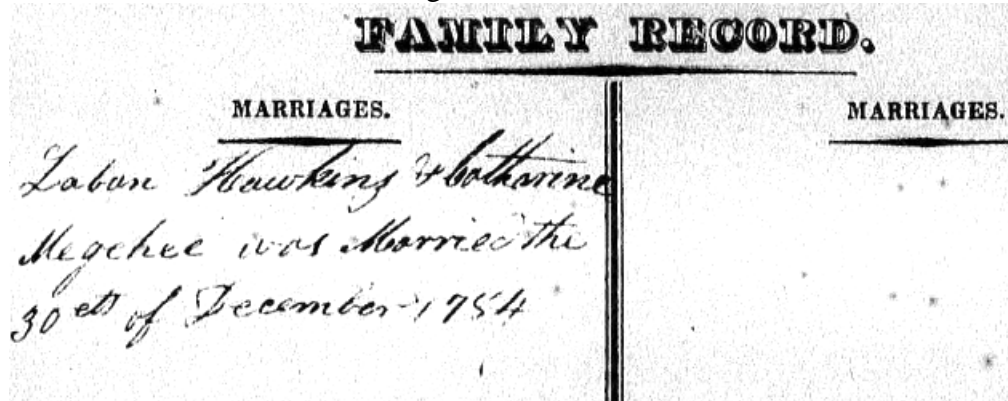 FAMILY RECORD.
MARRIAGES.
Laban Hawkins & Catharine
Megehee was Married the
30eth of December 1784
MARRIAGES.